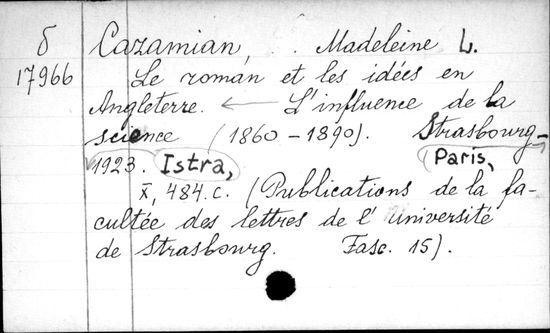 δ Cazamian, Madeleine L.
17966 Le roman et les idées en
Angleterre. ← L'influence de la
science (1860-1890). Strasbourg-
1923. Istra, Paris,
X, 484.c. (Publications de la fa-
cultée des lettres de l'université
de Strasbourg. Fasc. 15).